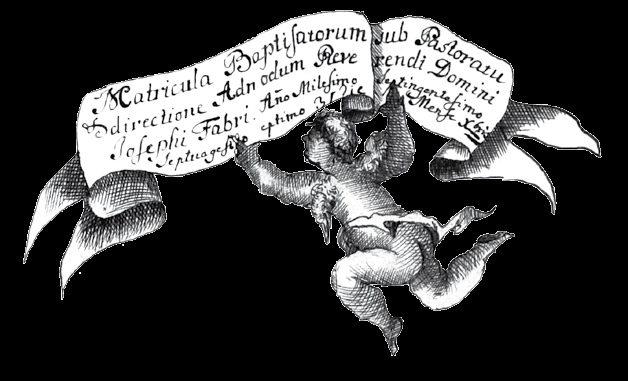 Matricula Baptisatorum sub Pastoratu
& directione Admodum Reverendi Domini
Josephi Fabri. Año Milesimo Septingentesimo
Septuagesimo Septimo 31 die Mense Xbri